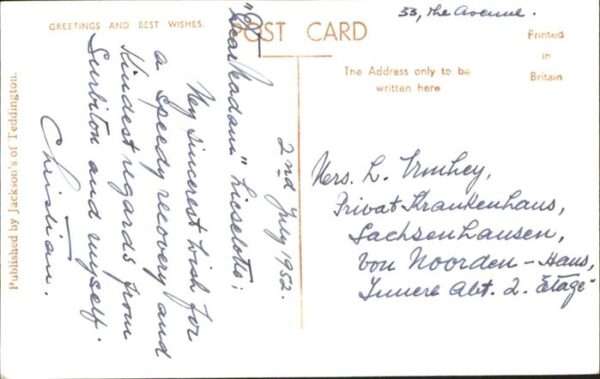 GREETINGS AND BEST WISHES.
POST CARD
53, the Avenue.
Printed
in
Britain
The Address only to be
written here
2nd July 1952.
"Dear Madam" Lieselotte;
My sincerest wish for
a speedy recovery and
kindest regards from
Surbiton and myself.
Christian.
Mrs. L.
Privat Krankenhaus,
Sachsenhausen,
von Noorden-Haus,
Innere Abt. 2. Etage
Published by Jackson's of Teddington.